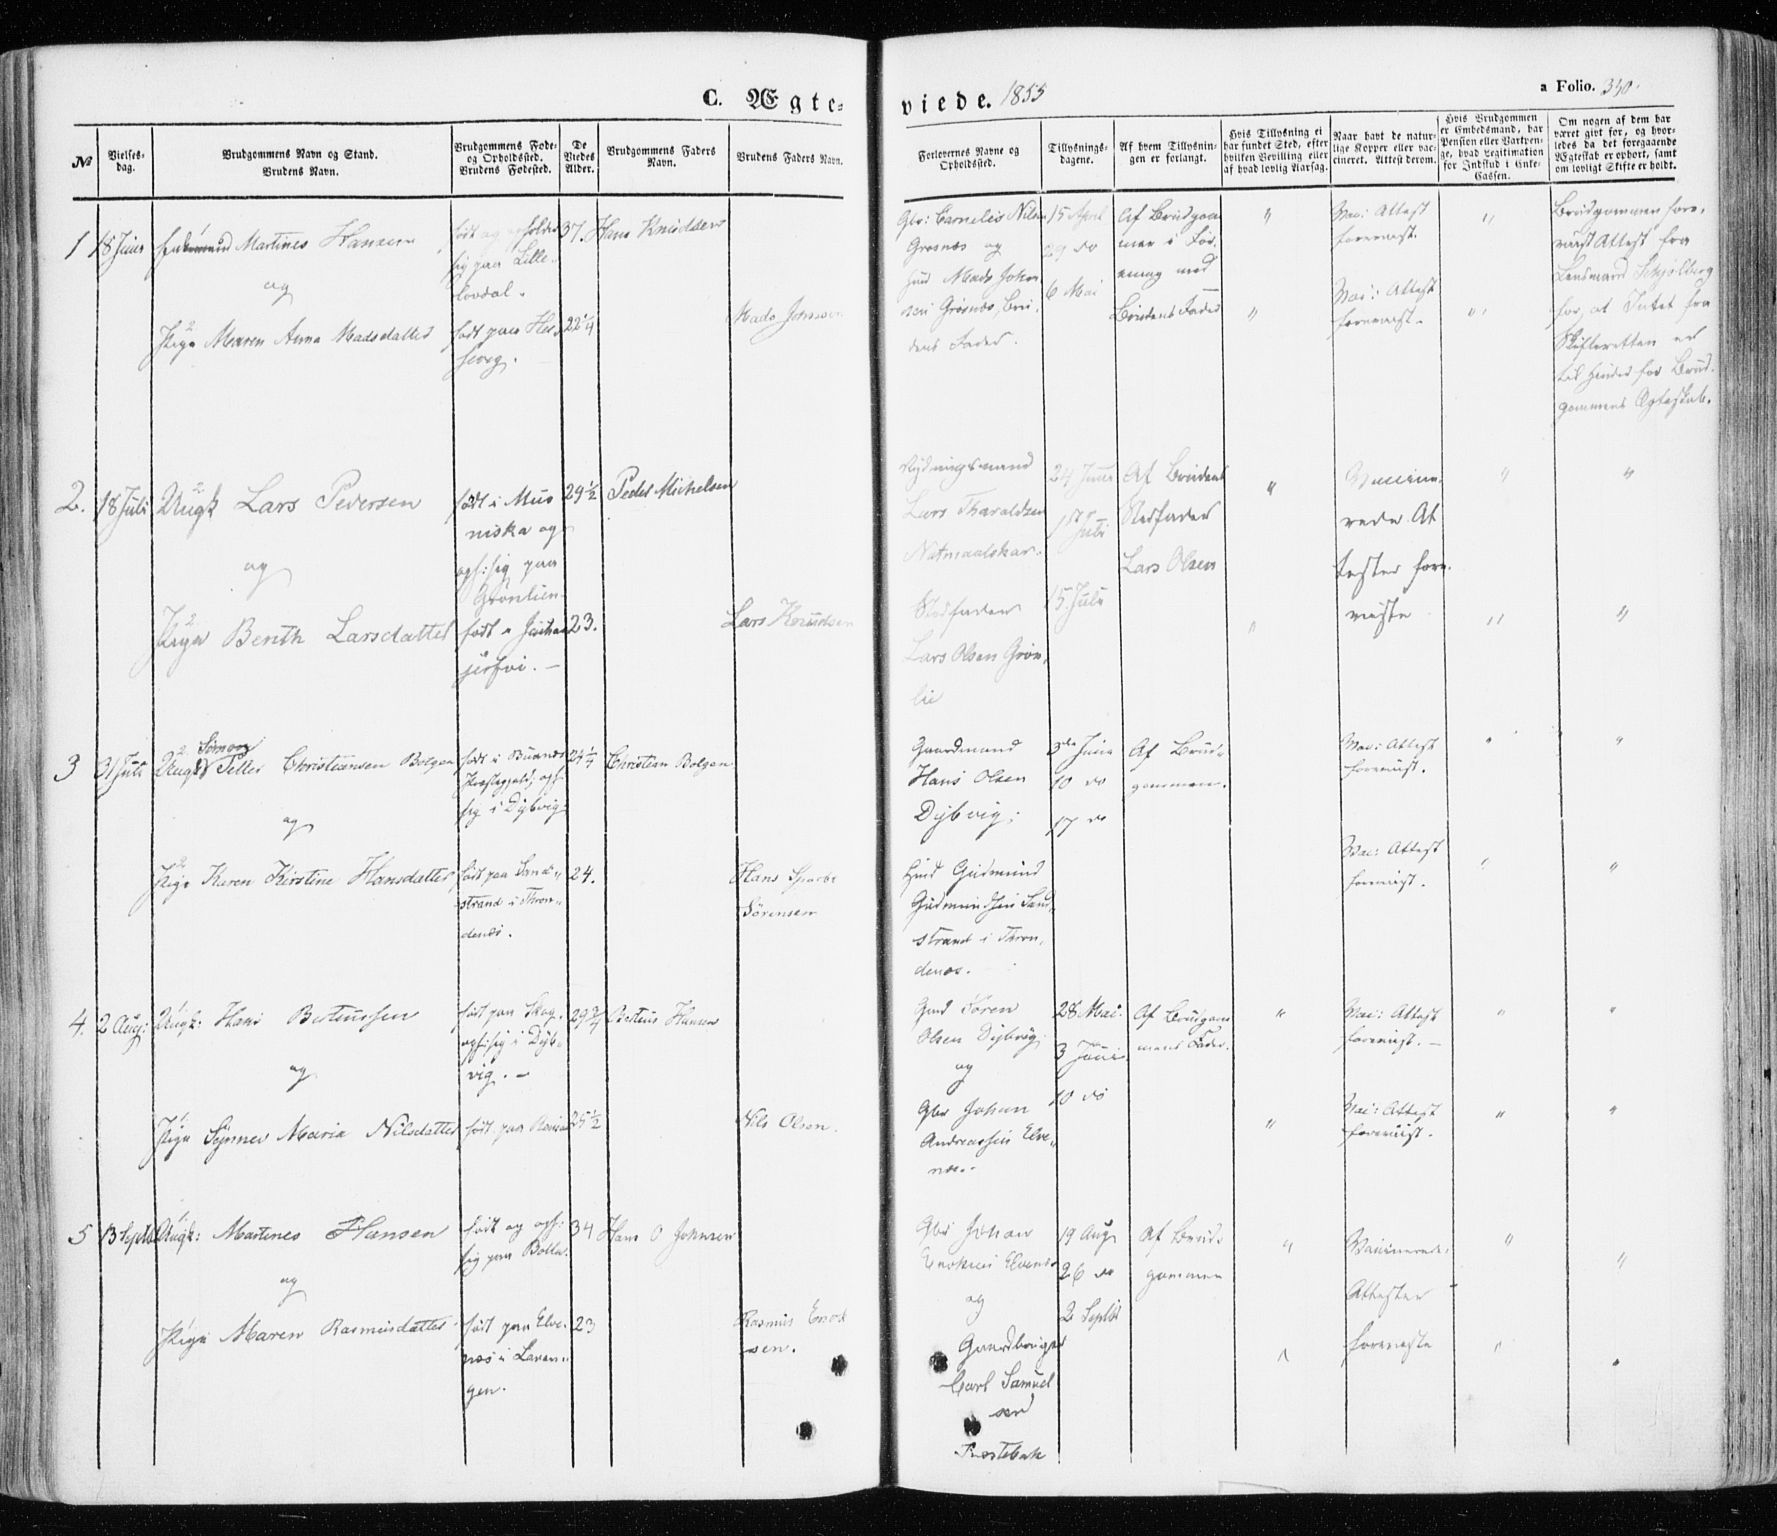 C. Ægte-
viede. 1855
a Folio. 350.
№
Vielses-
dag.
Brudgommens Navn og Stand.
Brudens Navn.
Brudgommens Føde-
og Opholdssted.
Brudens Fødested.
De
Viedes
Alder.
Brudgommens Faders
Navn.
Brudens Faders Navn.
Forlovernes Navne og
Opholdssted.
Tillysnings-
dagene.
Af hvem Tillysnin-
gen er forlangt.
Hvis Tillysning ei
har fundet Sted, efter
hvilken Bevilling eller
af hvad lovlig Aarsag.
Naar havt de natur-
lige Kopper eller vac-
cineret. Attest derom.
Hvis Brudgommen
er Embedsmand, har
Pension eller Vartpen-
ge, hvad Legitimation
for Indskud i Enke-
Cassen.
Om nogen af dem har
været gift før, og hvor-
ledes da det foregaaende
Ægteskab er ophørt, samt
om lovligt Skifte er holdt.
1
18 Juni
Martines Hansen
og
Pige Maren Anna Madsdatter
født og opholder
sig paa Lille-
født paa
37.
22 1/4
Hans Knudsen
Mads Jonsen
Gbr: Cornelis Nilsen
Grosnæs og
Mads Johan
sen Grosnæs, Bru-
dens Fader.
15 April
29 do
6 Mai
Af Brudgom
men i For-
ening med
Brudens Fader
Vac: Attest
foreviist.
Vac: Attest
foreviist.
Brudgommen fore-
viist Attest fra
Lensmand Schjølberg
for, at Intet fra
Skifteretten er
til Hinder for Brud-
gommens Ægteskab.
2.
18 Juli
Ungk Lars Pedersen
og
Pige Benth Larsdatter
født i Muo
niska og
oph: sig paa
Grønlien
født i
29 1/2
23.
Peder Michelsen
Lars Knudsen
Rydningsmand
Lars Tharaldsen
Stedfader
Lars Olsen Grøn-
lie
24 Juni
1ste Juli
15 Juli
Af Brudens
Stedfader
Lars Olsen
Vaccine-
rede At
tester fore-
viiste
3
31 Juli
Ungk Simon Petter Christiansen Bolgen
og
Pige Karen Kirstine Hansdatter
født i
Præstegjeld, oph:
sig i Dybvig
født paa Sand-
strand i Thron-
denæs.
24 1/4
24.
Christian Bolgen
Hans Sparbo
Sørensen
Gaardmand
Hans Olsen
Dybvig;
Gudmund
Gudmundsen Sand-
strand i Thron-
denæs.
3die Juni
10 do
17 do
Af Brud-
gommen.
Vac: Attest
foreviist.
Vac: Attest
foreviist.
4.
2 Aug:
Ungk: Hans Berteussen
og
Pige Synnev Maria Nilsdatter
født paa
oph: sig i Dyb-
vig.
født paa
29 3/4
25 1/2
Berteus Hansen
Nils Olsen.
Gmd Søren
Olsen Dybvig
og
Gbr Johan
Andreassen Elve-
næs.
28 Mai.
3 Juni
10 do
Af Brudgom
mens Fader.
Vac: Attest
foreviist.
Vac: Attest
foreviist.
5
13 Septbr
Ungk: Martines Hansen
og
Pige Maren Rasmusdatter
født og oph:
sig paa
født paa Elve-
næs i Lavan-
gen.
34
23
Hans O Johnsen
Rasmus Enok
sen.
Gbr Johan
Enoksen Elvenæs
og
Gaardbruger
Carl Samuel
sen
Fossbak
19 Aug
26 do
2 Septbr
Af Brud-
gommen
Vaccinerede
Attester
foreviste